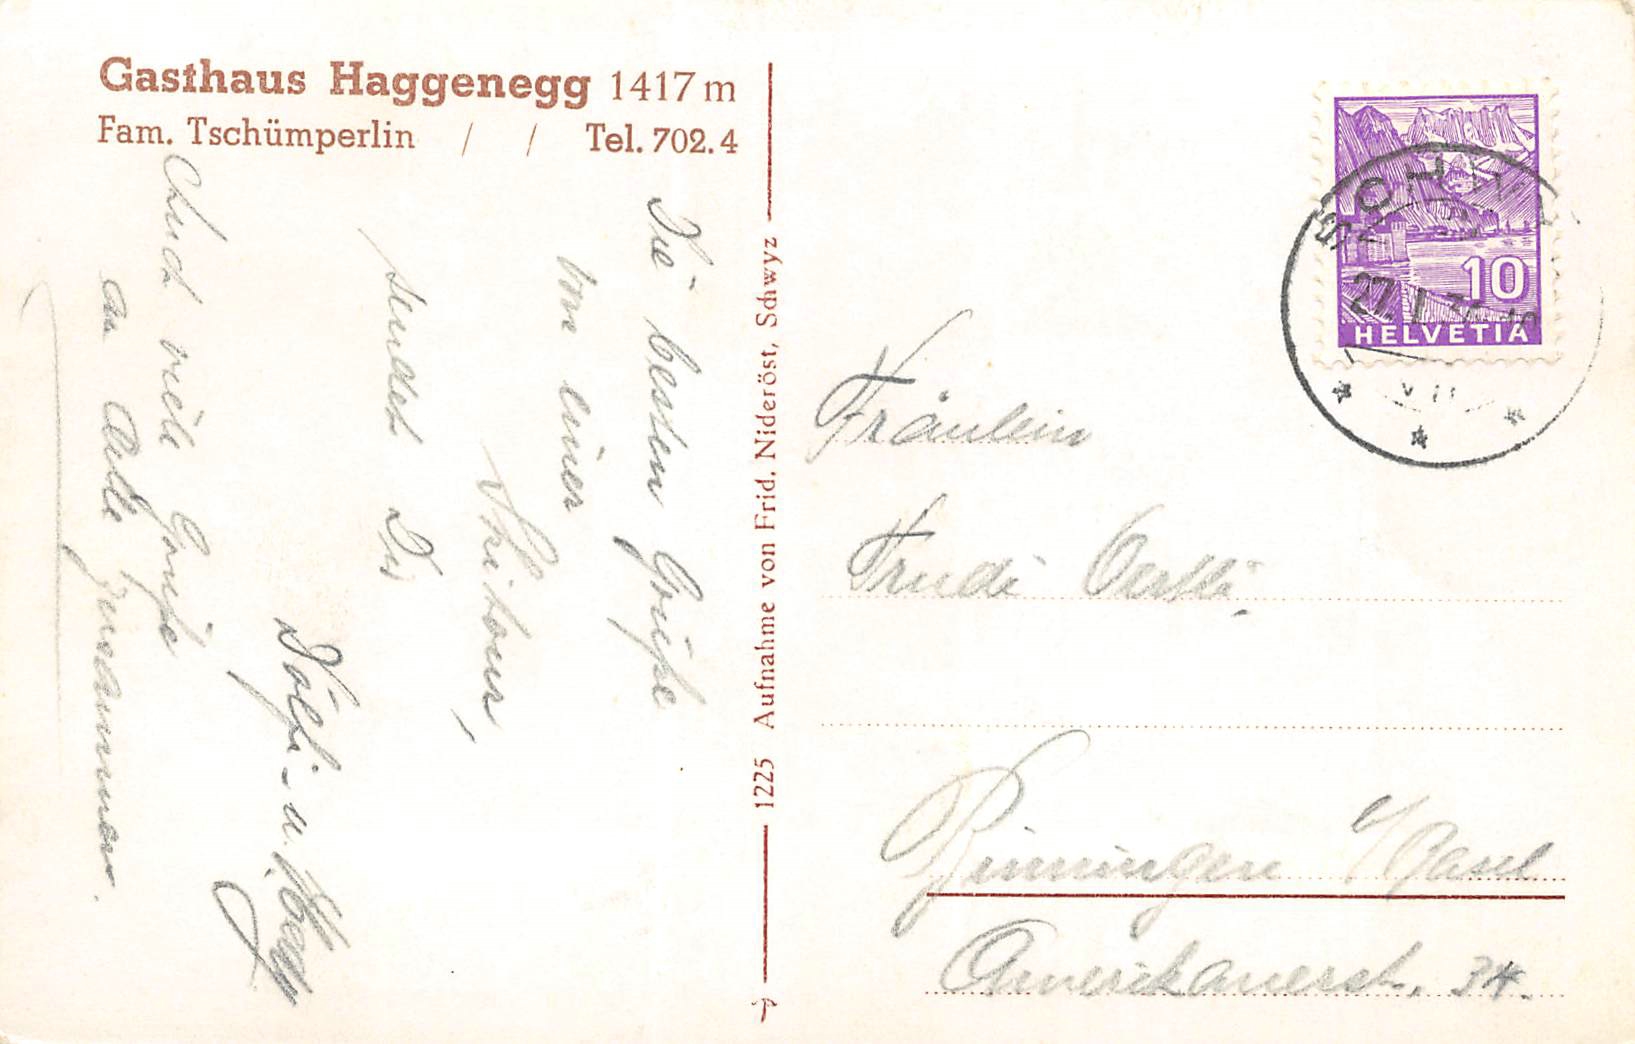 Gasthaus Haggenegg 1417 m
Fam. Tschümperlin / / Tel. 702.4
Die besten Grüsse
von einer
Skitour,
sendet Dir
Dölfi u.
Auch viele Grüsse
an Alle zusammen.
1225 Aufnahme von Frid. Nideröst, Schwyz
SCHWYZ
27. I.
VII
10
HELVETIA
Fräulein
Trudi
Binningen / Basel
Amerikanerst. 34.